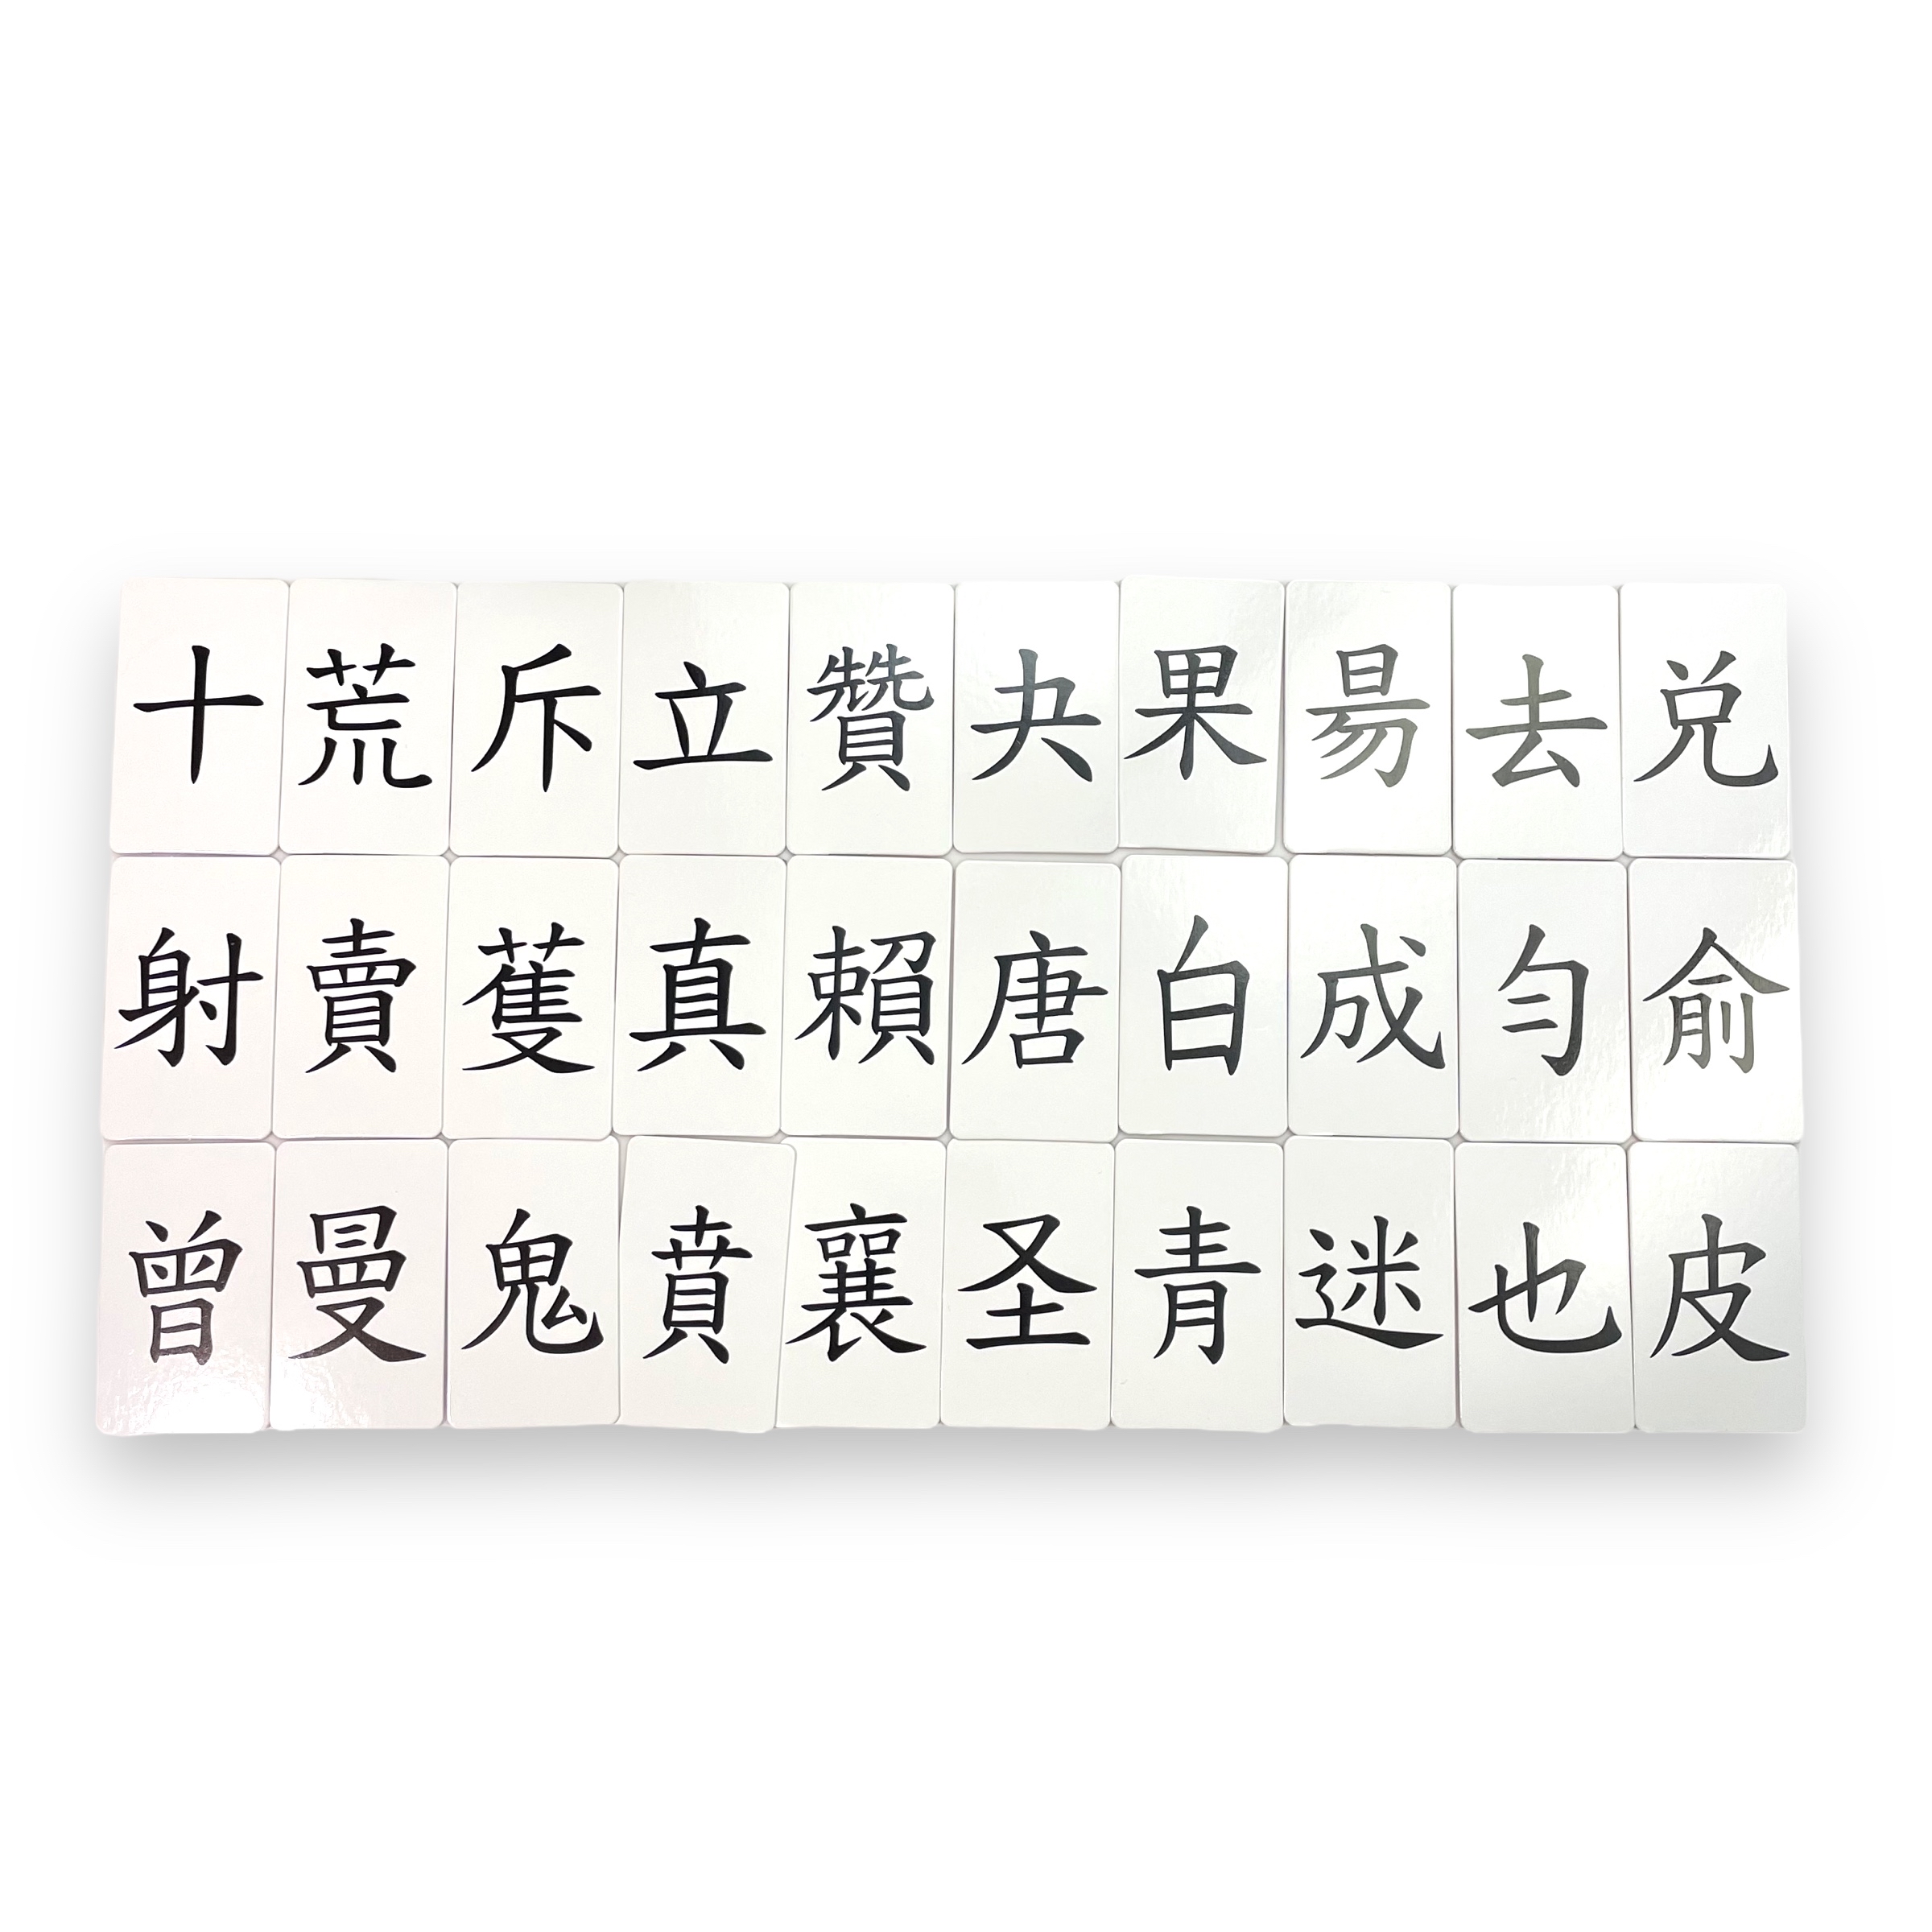 十荒斥立贊夬果昜去兑
射賣蒦真賴唐白成勻俞
曾曼鬼賁襄圣青迷也皮